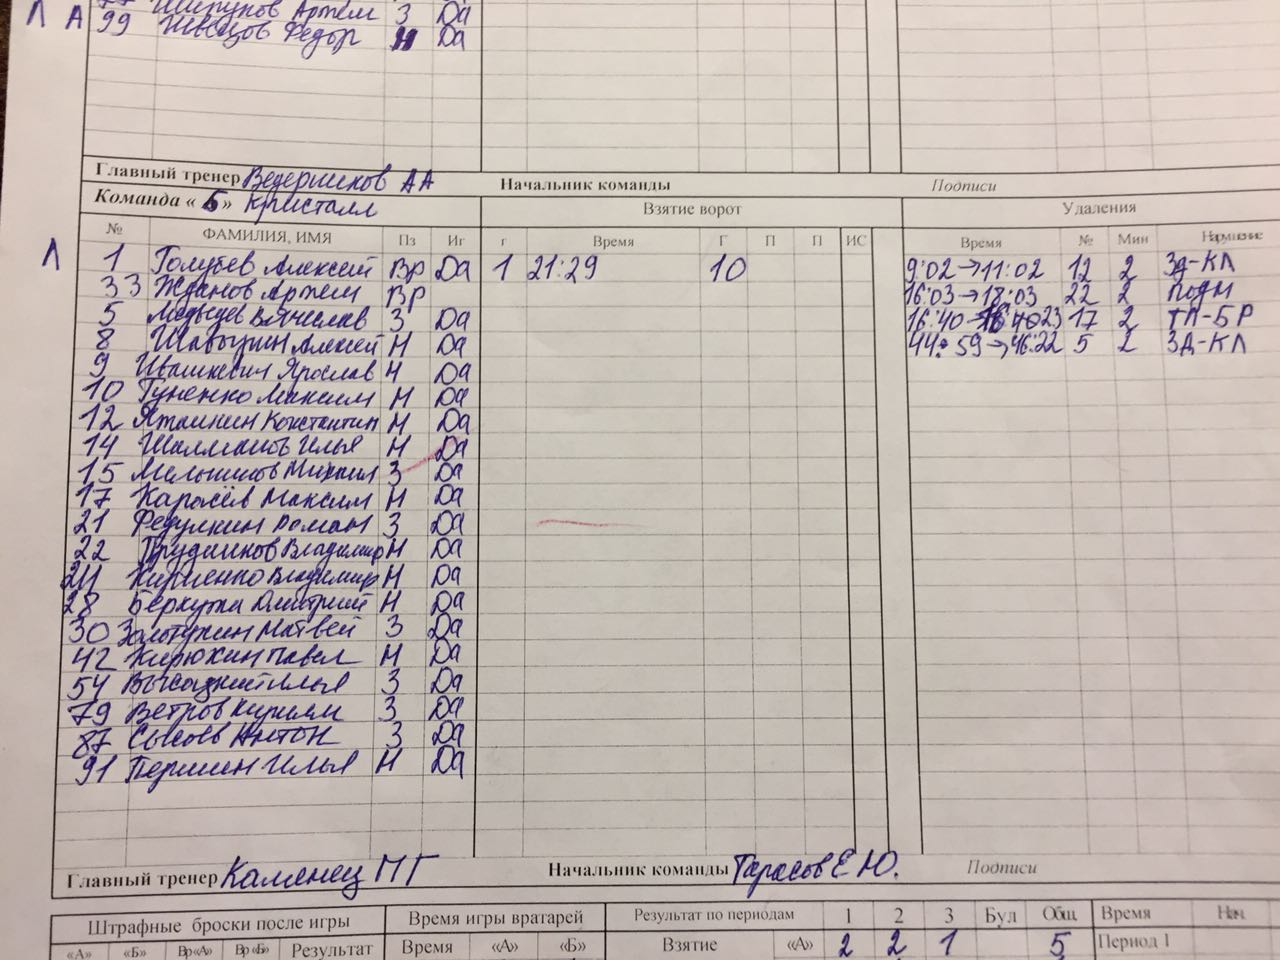 Артём З Да
Л А 99 Швецов Федор Н Да
Главный тренер Ведерников АА Начальник команды Подписи
Команда «Б» Кристалл Взятие ворот Удаления
№ ФАМИЛИЯ, ИМЯ Пз Иг г Время Г П П ИС Время № Мин Нарушение
Л 1 Голубев Алексей Вр Да 1 21:29 10 9:02→11:02 12 2 ЗД-КЛ
33 Жданов Артем ВР 16:03→18:03 22 2 Подн
5 Медведев Вячеслав З Да 16:40→ 17 2 ТЛ-БР
8 Алексей Н Да 44:59→46:22 5 2 ЗД-КЛ
9 Ивашкевич Ярослав Н Да
10 Гуненко Максим Н Да
12 Константин Н Да
14 Илья Н Да
15 Мельников Михаил З Да
17 Карасёв Максим Н Да
21 Федулкин Роман З Да
22 Прудников Владимир Н Да
Кириенко Владимир Н Да
28 Беркутка Дмитрий Н Да
30 Золотухин Матвей З Да
42 Кирюхин Павел Н Да
54 Илья З Да
79 Ветров Кирилл З Да
87 Сысоев Антон З Да
91 Першин Илья Н Да
Главный тренер Каменец МГ Начальник команды Тарасов Е Ю. Подписи
Штрафные броски после игры Время игры вратарей Результат по периодам 1 2 3 Бул Общ Время Нач.
«А» «Б» Вр«А» Вр«Б» Результат Время «А» «Б» Взятие «А» 2 2 1 5 Период 1